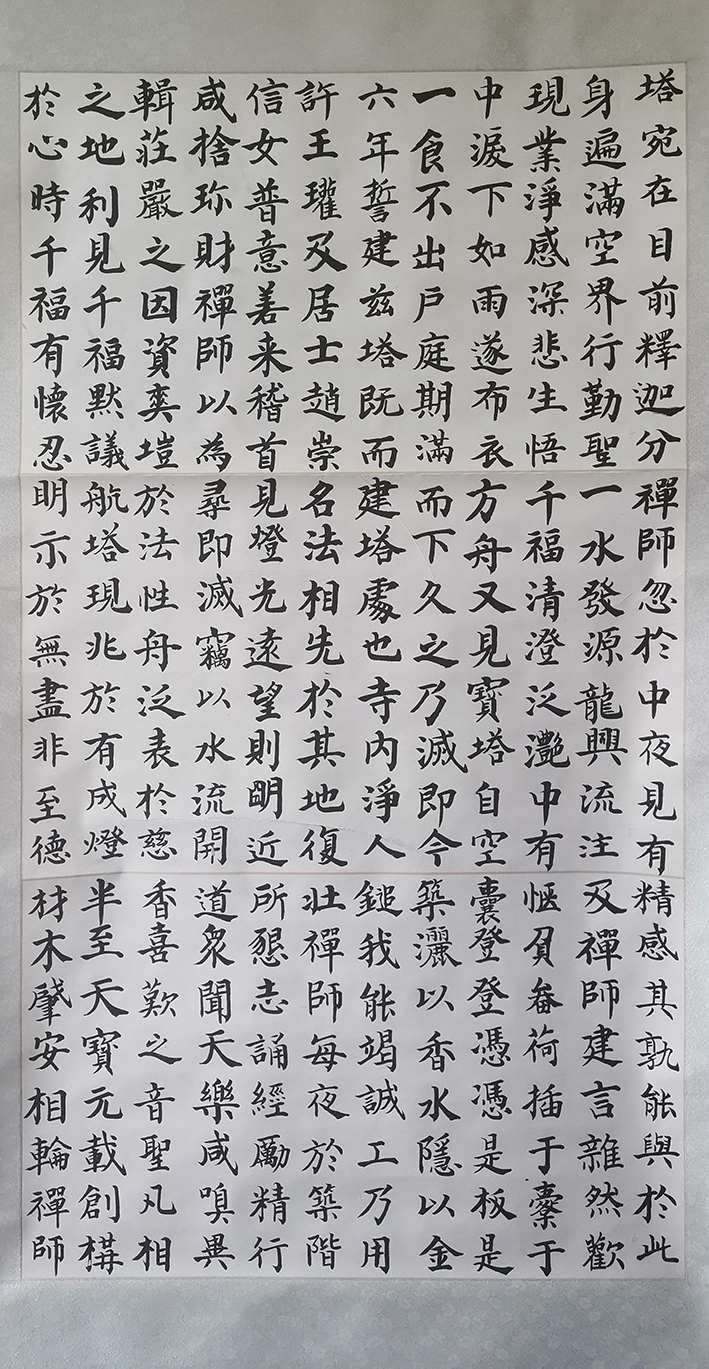 塔宛在目前釋迦分
身遍滿空界行勤聖
現業淨感深悲生悟
中淚下如雨遂布衣
一食不出戶庭期滿
六年誓建茲塔既而
許王瓘及居士趙崇
信女普意善来稽首
咸捨珎財禪師以為
輯莊嚴之因資爽塏
之地利見千福默議
於心時千福有懷忍
禪師忽於中夜見有
一水發源龍興流注
千福清澄泛灧中有
方舟又見寶塔自空
而下久之乃滅即今
建塔處也寺內淨人
名法相先於其地復
見燈光遠望則明近
尋即滅竊以水流開
於法性舟泛表於慈
航塔現兆於有成燈
明示於無盡非至德
精感其孰能與於此
及禪師建言雜然歡
愜負畚荷插于橐于
囊登登憑憑是板是
築灑以香水隱以金
鎚我能竭誠工乃用
壯禪師每夜於築階
所懇志誦經勵精行
道眾聞天樂咸嗅異
香喜歎之音聖凡相
半至天寶元載創構
材木肇安相輪禪師